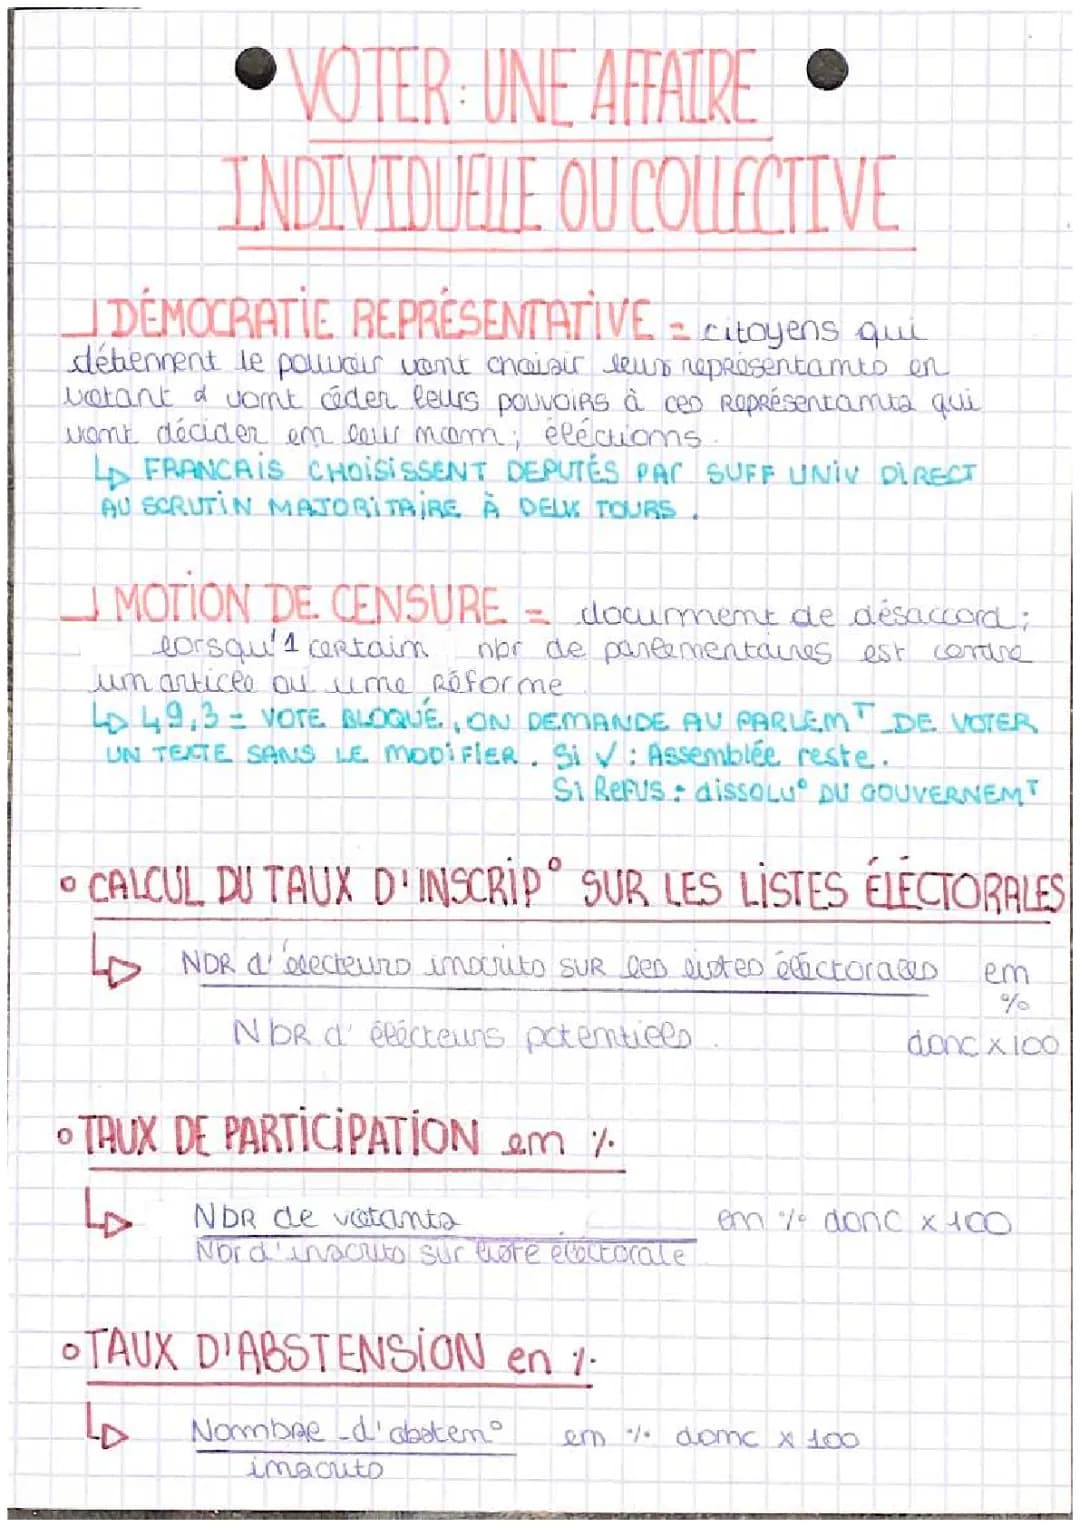 VOTER : UNE AFFAIRE
INDIVIDUELLE OU COLLECTIVE
DÉMOCRATIE REPRÉSENTATIVE = citoyens qui
détiennent le pouvoir vont choisir leurs représentants en
votant & vont céder leurs pouvoirs à ces représentants qui
vont décider en leur nom ; éléctions.
↳ FRANCAIS CHOISISSENT DEPUTÉS PAR SUFF UNIV DIRECT
AU SCRUTIN MAJORITAIRE À DEUX TOURS.
MOTION DE CENSURE = document de désaccord ;
lorsqu'1 certain nbr de parlementaires est contre
un article ou une réforme
↳ 49,3 = VOTE BLOQUÉ, ON DEMANDE AU PARLEMᵀ DE VOTER
UN TEXTE SANS LE MODIFIER. Si ✓ : Assemblée reste.
Si REFUS : dissolu° DU GOUVERNEMᵀ
• CALCUL DU TAUX D'INSCRIP° SUR LES LISTES ÉLÉCTORALES
↳ NBR d'électeurs inscrits SUR les listes éléctorales em
%
NbR d'élécteurs potentiels. donc x 100
• TAUX DE PARTICIPATION em %
↳ NbR de votants em % donc x 100
Nbr d'inscrits sur liste électorale
• TAUX D'ABSTENSION en %
↳ Nombre d'absten° em % donc x 100
inscrits